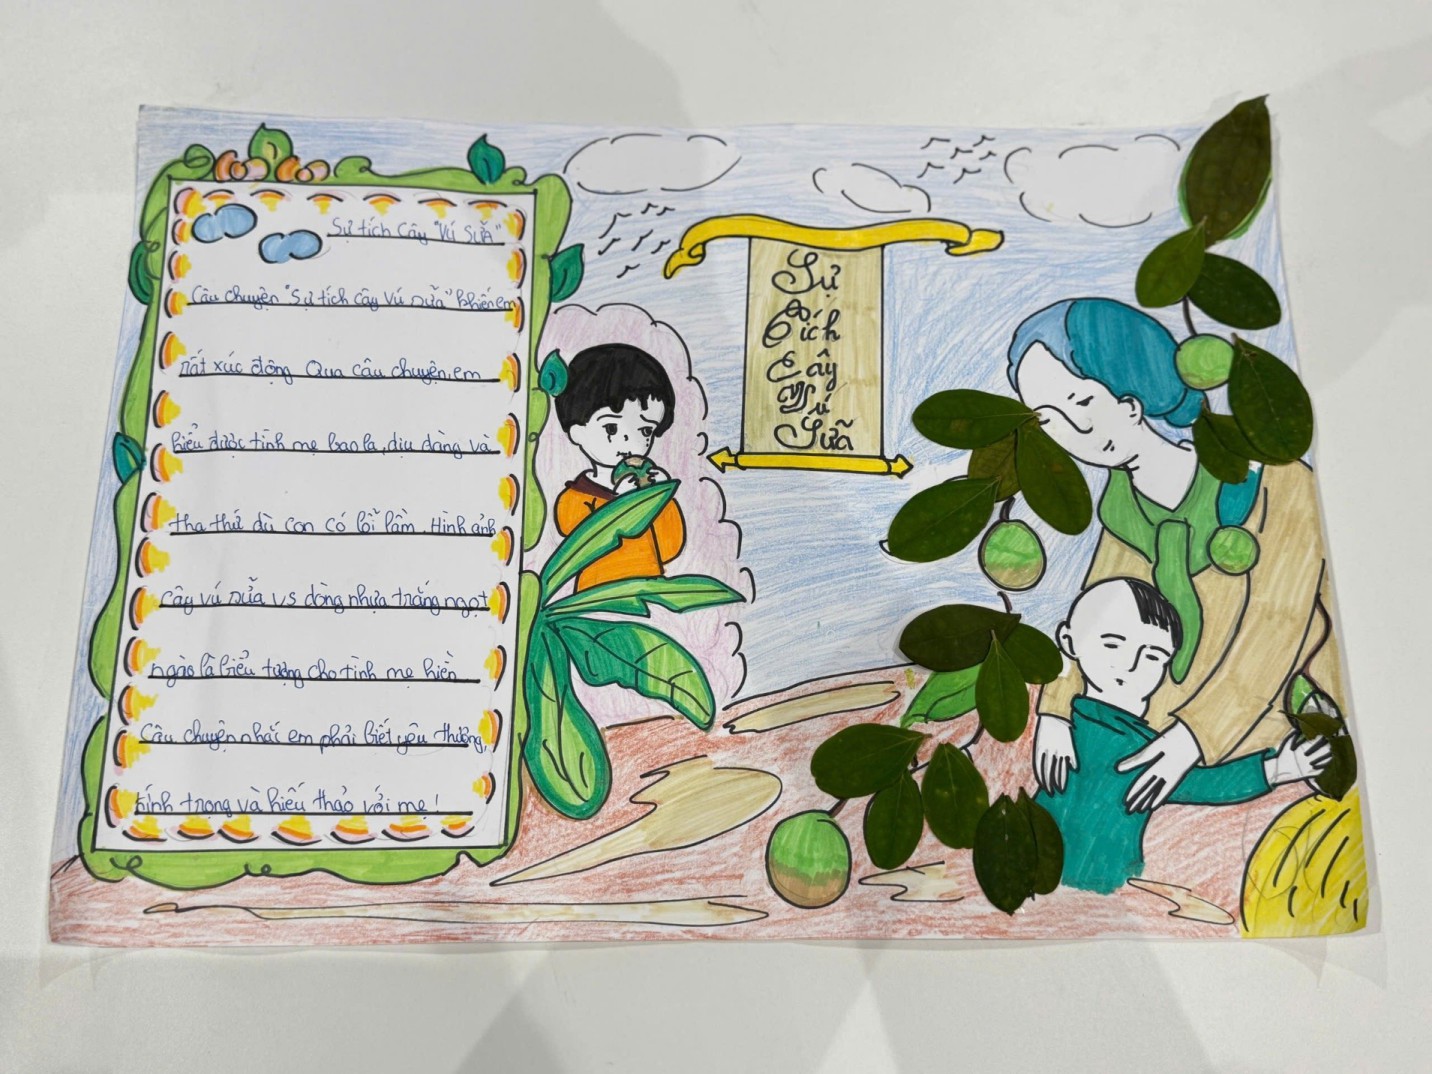 Sự tích Cây "VÚ SỮA"
Câu chuyện "Sự tích cây Vú sữa" khiến em
rất xúc động Qua câu chuyện, em
hiểu được tình mẹ bao la, dịu dàng và
tha thứ dù con có lỗi lầm. Hình ảnh
cây vú sữa vs dòng nhựa trắng ngọt
ngào là biểu tượng cho tình mẹ hiền
Câu chuyện nhắc em phải biết yêu thương,
kính trọng và hiếu thảo với mẹ!
Sự
Tích
Cây
Vú
Sữa